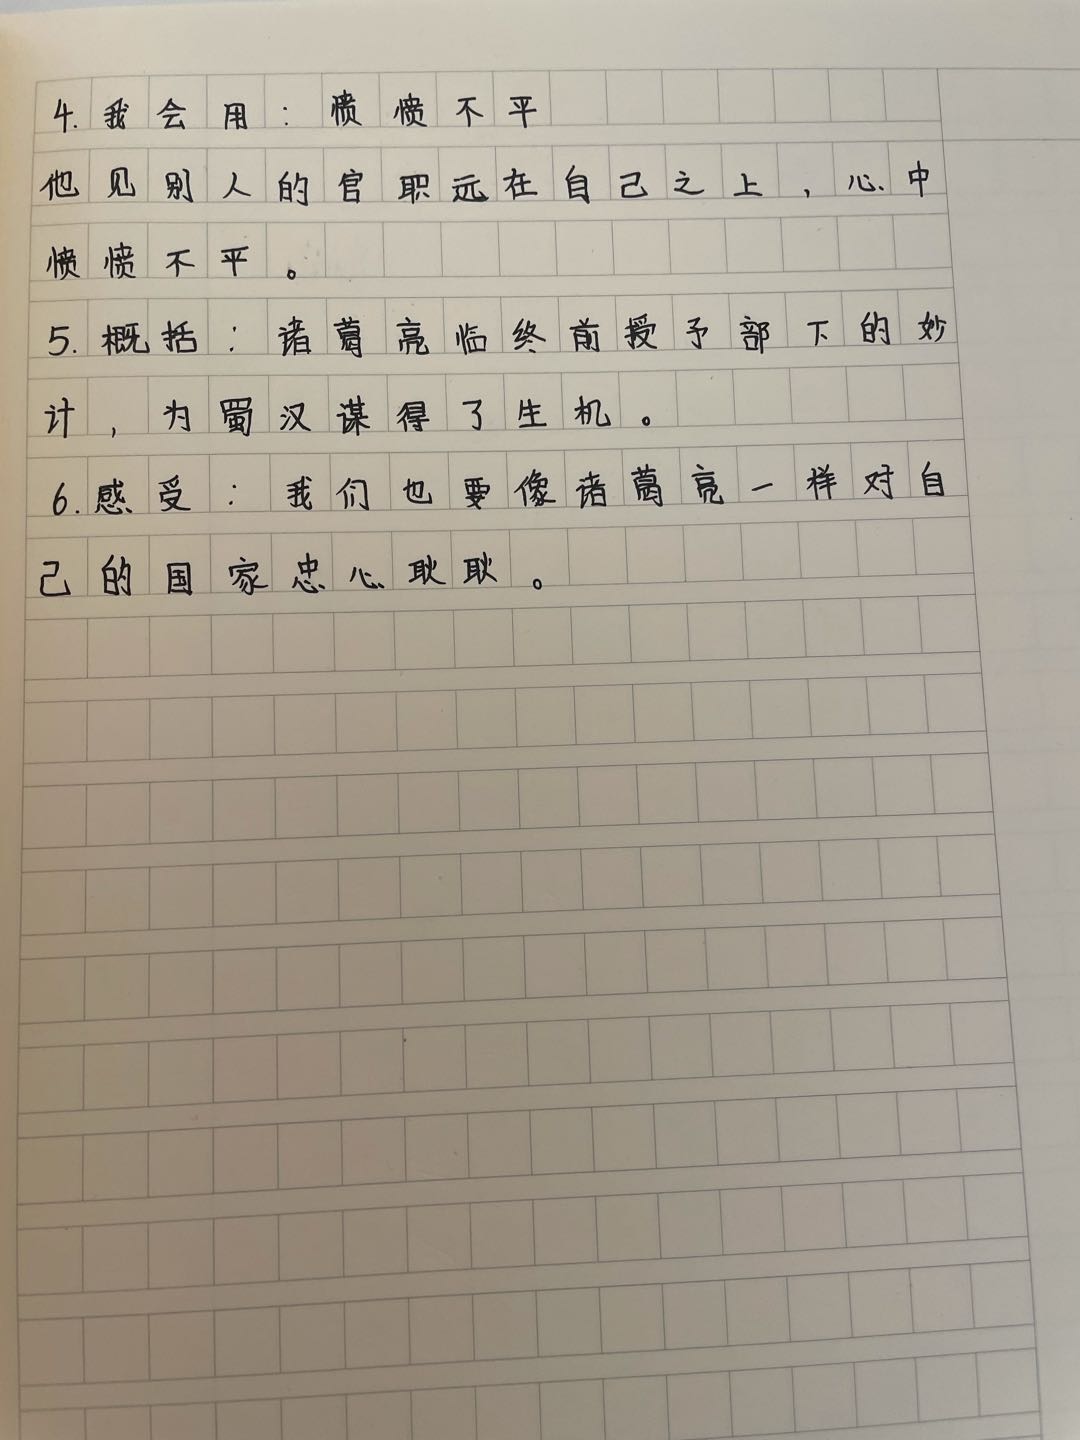 4.我会用：愤愤不平
他见别人的官职远在自己之上，心中
愤愤不平。
5.概括：诸葛亮临终前授予部下的妙
计，为蜀汉谋得了生机。
6.感受：我们也要像诸葛亮一样对自
己的国家忠心耿耿。